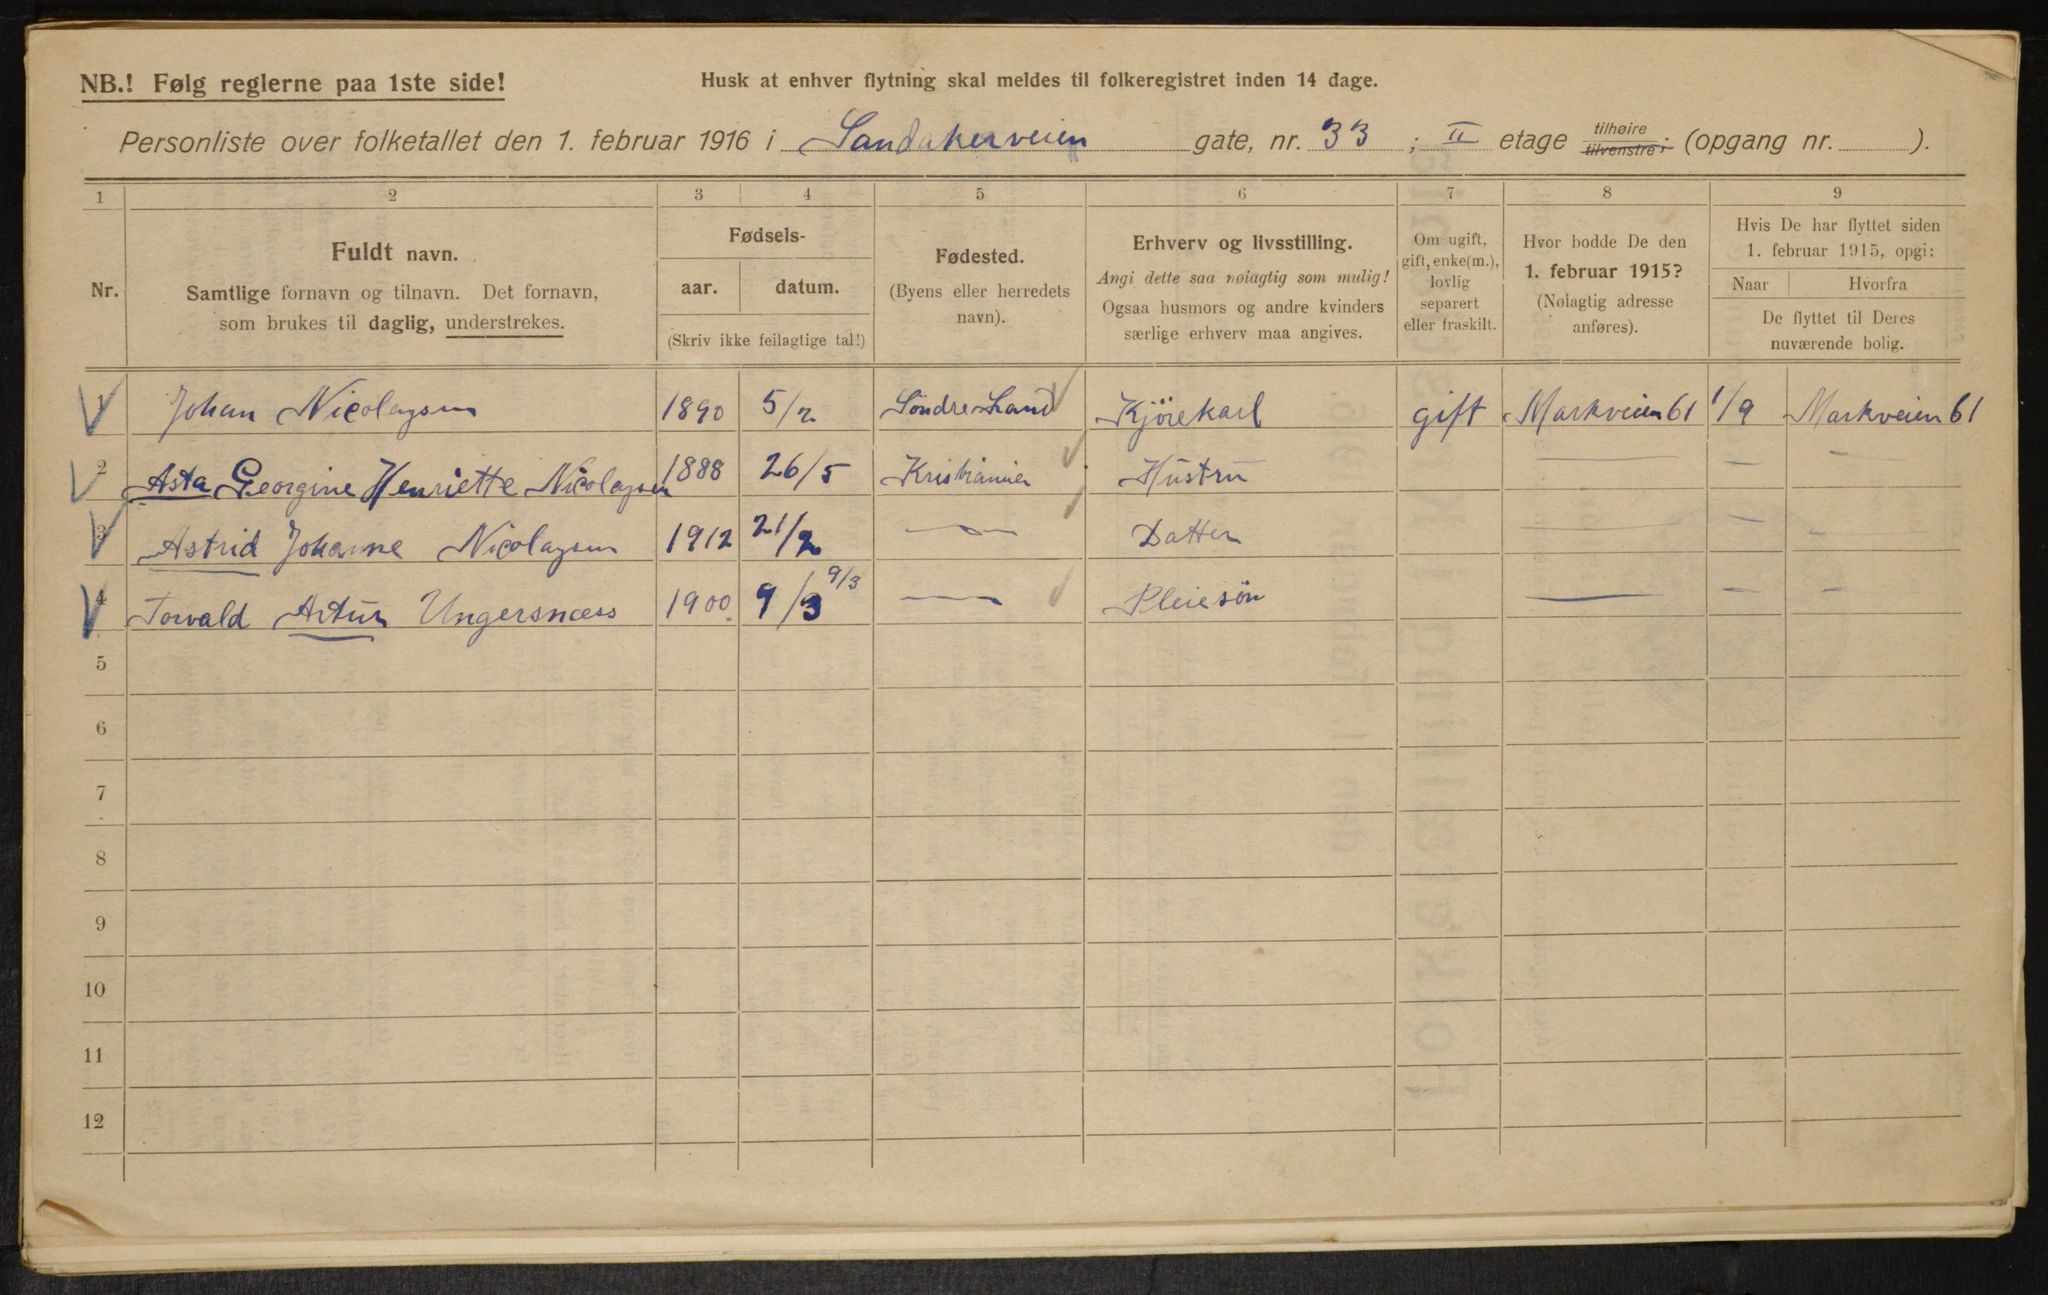 NB.! Følg reglerne paa 1ste side!
Husk at enhver flytning skal meldes til folkeregistret inden 14 dage.
Personliste over folketallet den 1. februar 1916 i Sandakerveien gate, nr. 33 ; II etage tilhøire tilvenstre; (opgang nr. ).
1 2 3 4 5 6 7 8 9
Nr.
Fuldt navn.
Samtlige fornavn og tilnavn. Det fornavn,
som brukes til daglig, understrekes.
Fødsels-
aar. datum.
(Skriv ikke feilagtige tal!)
Fødested.
(Byens eller herredets
navn).
Erhverv og livsstilling.
Angi dette saa nøiagtig som mulig!
Ogsaa husmors og andre kvinders
særlige erhverv maa angives.
Om ugift,
gift, enke(m.),
lovlig
separert
eller fraskilt.
Hvor bodde De den
1. februar 1915?
(Nøiagtig adresse
anføres).
Hvis De har flyttet siden
1. februar 1915, opgi:
Naar Hvorfra
De flyttet til Deres
nuværende bolig.
1 Johan Nicolaysen 1890 5/2 Söndre Land Kjörekarl gift Markveien 61 1/9 Markveien 61
2 Asta Georgine Henriette Nicolaysen 1888 26/5 Kristiania Hustru — — —
3 Astrid Johanne Nicolaysen 1912 21/2 — Datter — — —
4 Torvald Artur Ungersness 1900 9/3 9/3 — Pleiesön — — —
5
6
7
8
9
10
11
12